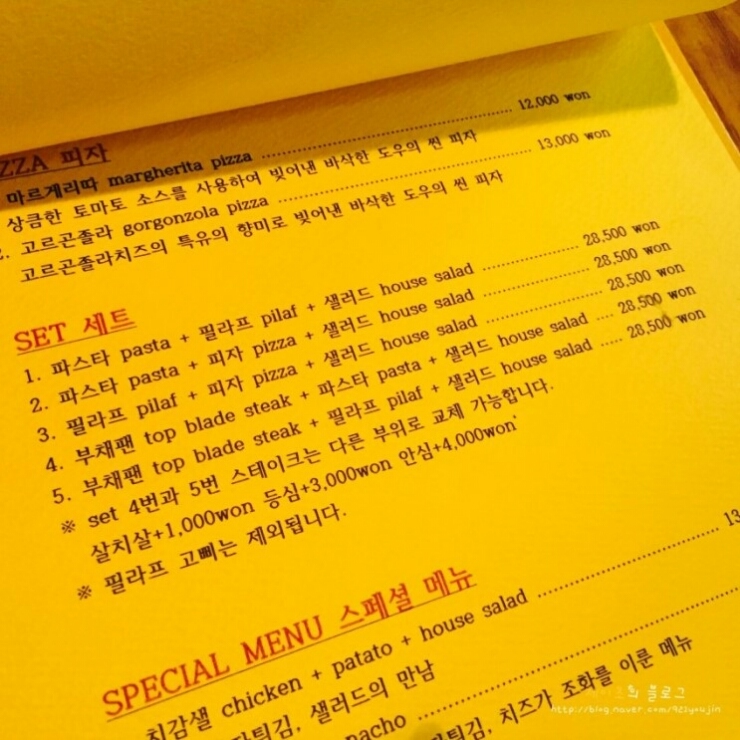 피자
마르게리따 margherita pizza 12,000 won
상큼한 토마토 소스를 사용하여 빚어낸 바삭한 도우의 씬 피자
고르곤졸라 gorgonzola pizza 13,000 won
고르곤졸라치즈의 특유의 향미로 빚어낸 바삭한 도우의 씬 피자
SET 세트
1. 파스타 pasta + 필라프 pilaf + 샐러드 house salad 28,500 won
2. 파스타 pasta + 피자 pizza + 샐러드 house salad 28,500 won
3. 필라프 pilaf + 피자 pizza + 샐러드 house salad 28,500 won
4. 부채팬 top blade steak + 파스타 pasta + 샐러드 house salad 28,500 won
5. 부채팬 top blade steak + 필라프 pilaf + 샐러드 house salad 28,500 won
※ set 4번과 5번 스테이크는 다른 부위로 교체 가능합니다.
살치살+1,000won 등심+3,000won 안심+4,000won
※ 필라프 고삐는 제외됩니다.
SPECIAL MENU 스페셜 메뉴
치감샐 chicken + patato + house salad
샐러드의 만남
치즈가 조화를 이룬 메뉴
블로그